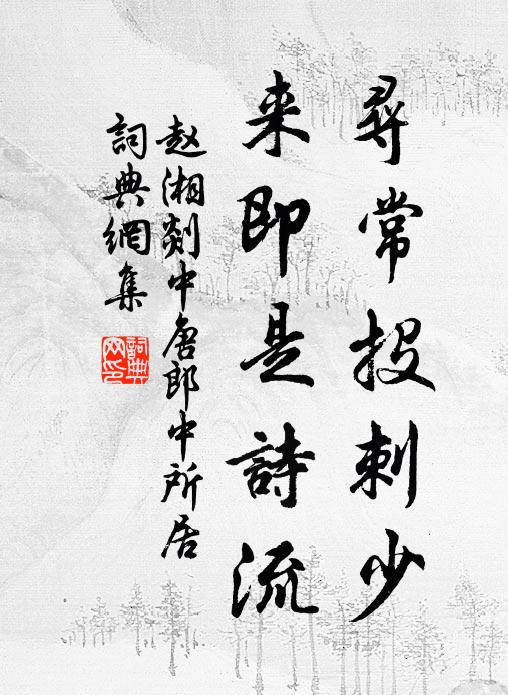 尋常投刺少
来即是詩流
赵湘剡中唐郎中所居
詞典網集
詞典网印